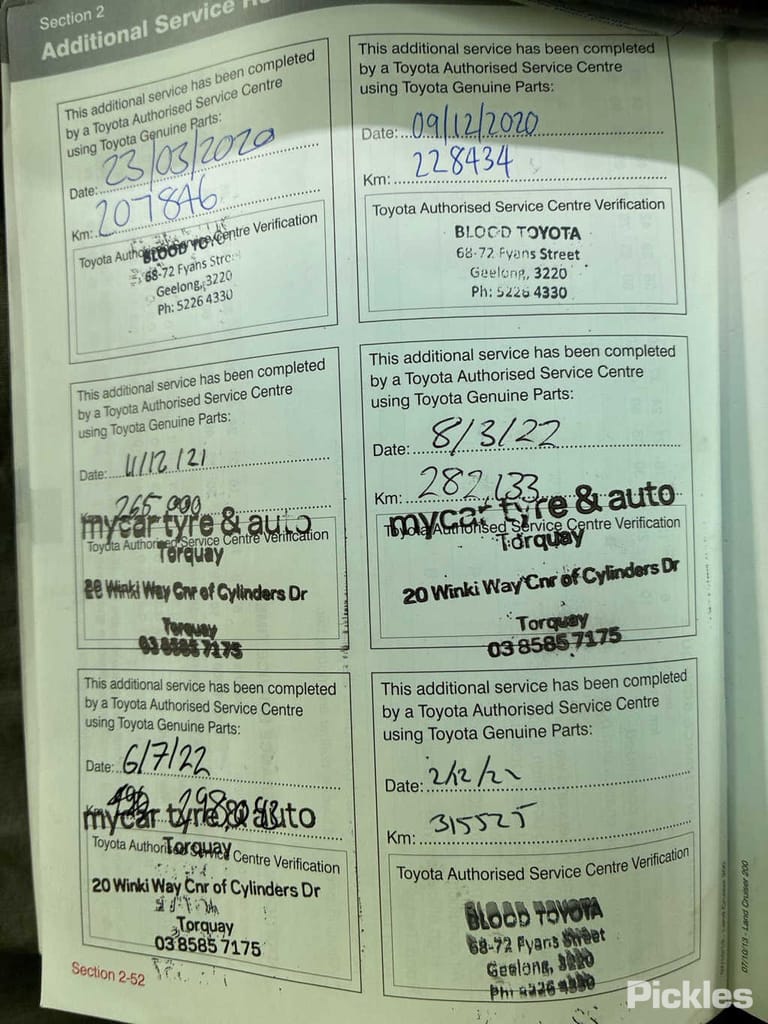 Section 2
Additional Service
This additional service has been completed
by a Toyota Authorised Service Centre
using Toyota Genuine Parts:
Date: 23/03/2020
Km: 207846
Toyota Authorised Service Centre Verification
BLOOD TOYOTA
68-72 Fyans Street
Geelong, 3220
Ph: 5226 4330
This additional service has been completed
by a Toyota Authorised Service Centre
using Toyota Genuine Parts:
Date: 09/12/2020
Km: 228434
Toyota Authorised Service Centre Verification
BLOOD TOYOTA
68-72 Fyans Street
Geelong, 3220
Ph: 5226 4330
This additional service has been completed
by a Toyota Authorised Service Centre
using Toyota Genuine Parts:
Date: 11/12/21
Km: 265 000
mycar tyre & auto
Toyota Authorised Service Centre Verification
Torquay
20 Winki Way Cnr of Cylinders Dr
Torquay
03 8585 7175
This additional service has been completed
by a Toyota Authorised Service Centre
using Toyota Genuine Parts:
Date: 8/3/22
Km: 282,133
mycar tyre & auto
Toyota Authorised Service Centre Verification
Torquay
20 Winki Way Cnr of Cylinders Dr
Torquay
03 8585 7175
This additional service has been completed
by a Toyota Authorised Service Centre
using Toyota Genuine Parts:
Date: 6/7/22
Km:
mycar tyre & auto
Toyota Authorised Service Centre Verification
Torquay
20 Winki Way Cnr of Cylinders Dr
Torquay
03 8585 7175
This additional service has been completed
by a Toyota Authorised Service Centre
using Toyota Genuine Parts:
Date: 2/12/22
Km: 315525
Toyota Authorised Service Centre Verification
BLOOD TOYOTA
68-72 Fyans Street
Geelong, 3220
Ph: 5226 4330
Section 2-52
07/10/13 - Land Cruiser 200
Pickles